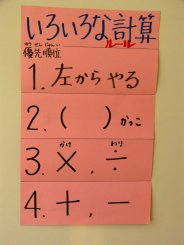 いろいろな計算
ルール
ゆうせんじゅんい
優先順位
1. 左からやる
2. ( ) かっこ
かけ わり
3. ×, ÷
4. +, -